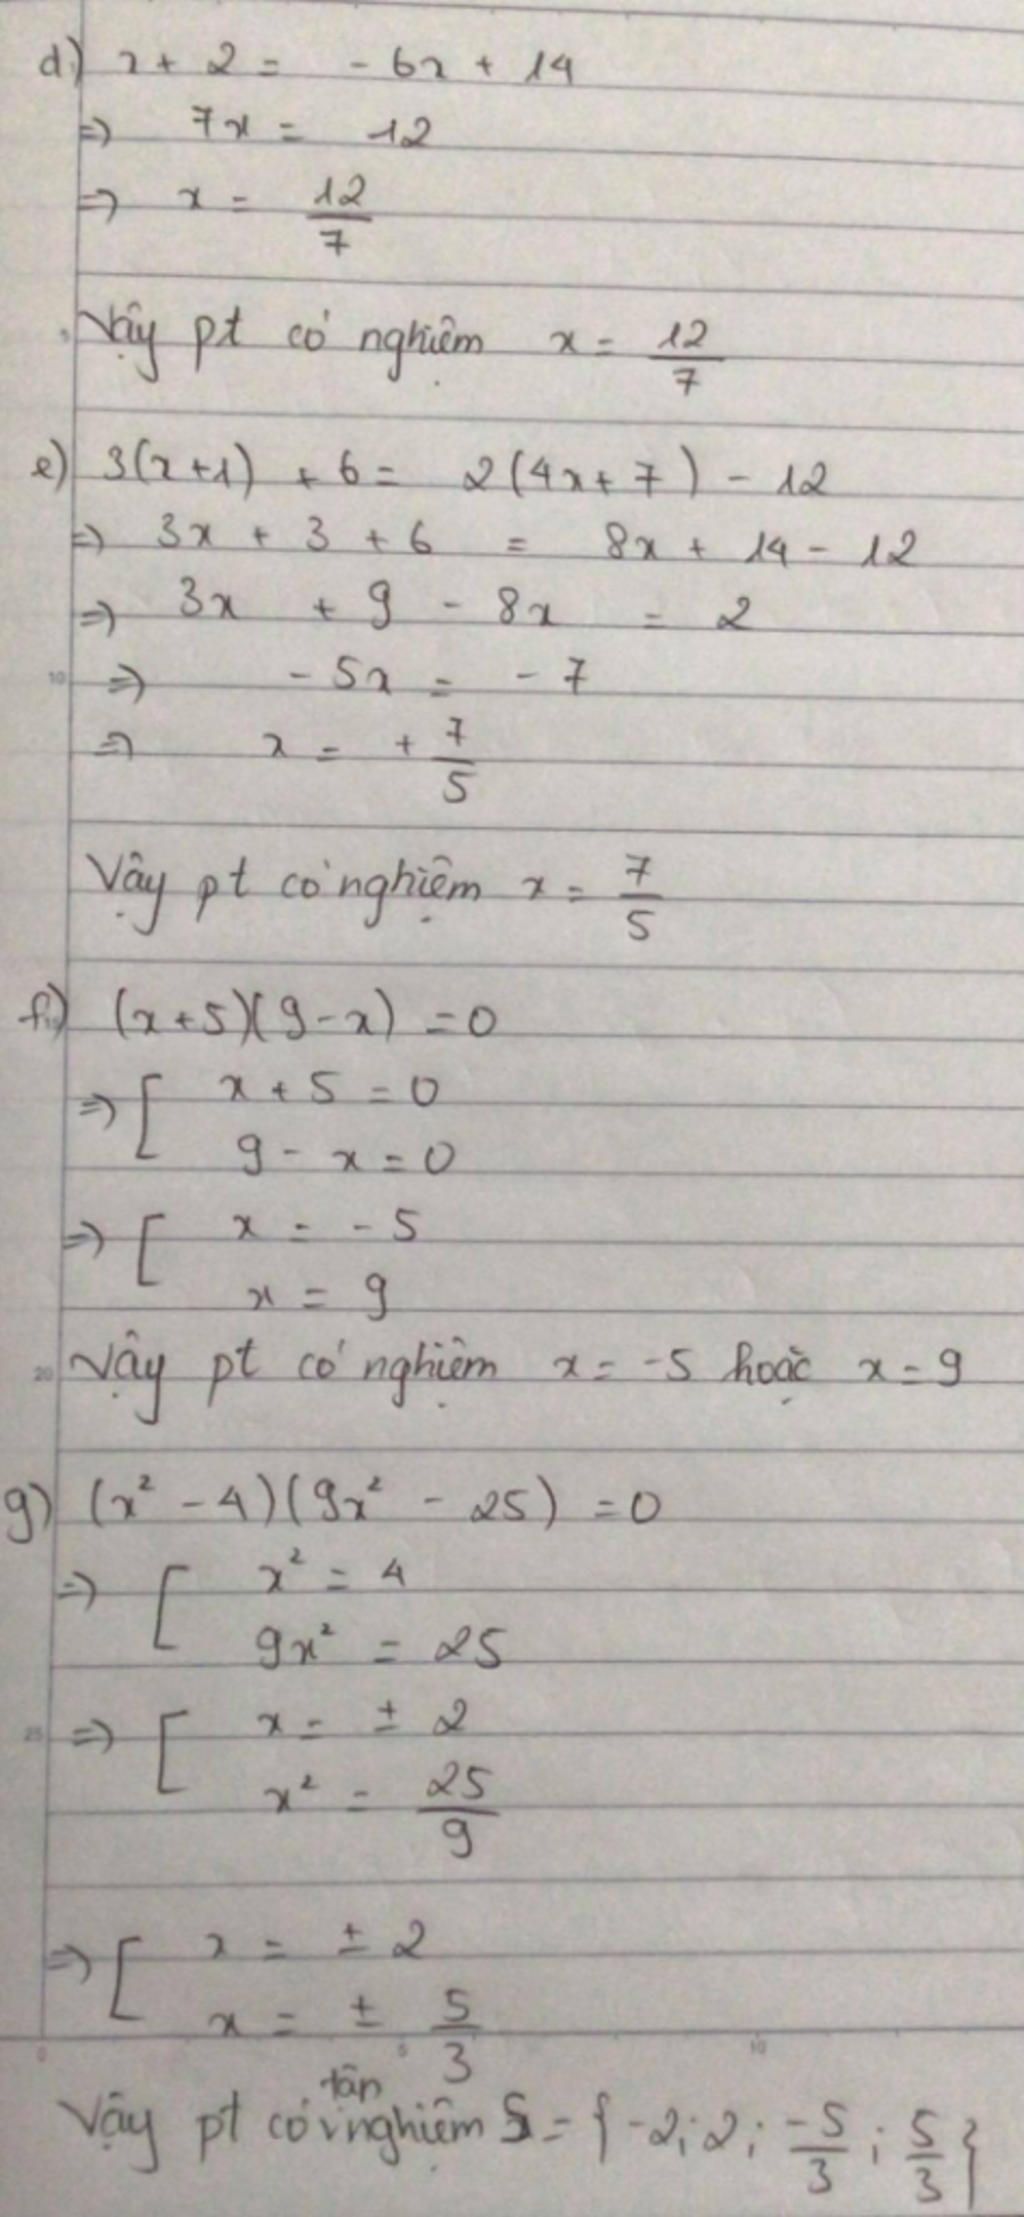 d) x + 2 = - 6x + 14
=> 7x = 12
=> x = 12/7
Vậy pt có nghiệm x = 12/7
e) 3(x+1) + 6 = 2(4x+7) - 12
=> 3x + 3 + 6 = 8x + 14 - 12
=> 3x + 9 - 8x = 2
10 => - 5x = - 7
=> x = + 7/5
Vậy pt có nghiệm x = 7/5
f) (x+5)(9-x) = 0
=> [ x + 5 = 0
9 - x = 0
=> [ x = - 5
x = 9
20 Vậy pt có nghiệm x = -5 hoặc x = 9
g) (x² - 4)(9x² - 25) = 0
=> [ x² = 4
9x² = 25
25 => [ x = ± 2
x² = 25/9
=> [ x = ± 2
x = ± 5/3
0 5 10
Vậy pt có tân nghiệm S = { -2; 2; -5/3; 5/3 }